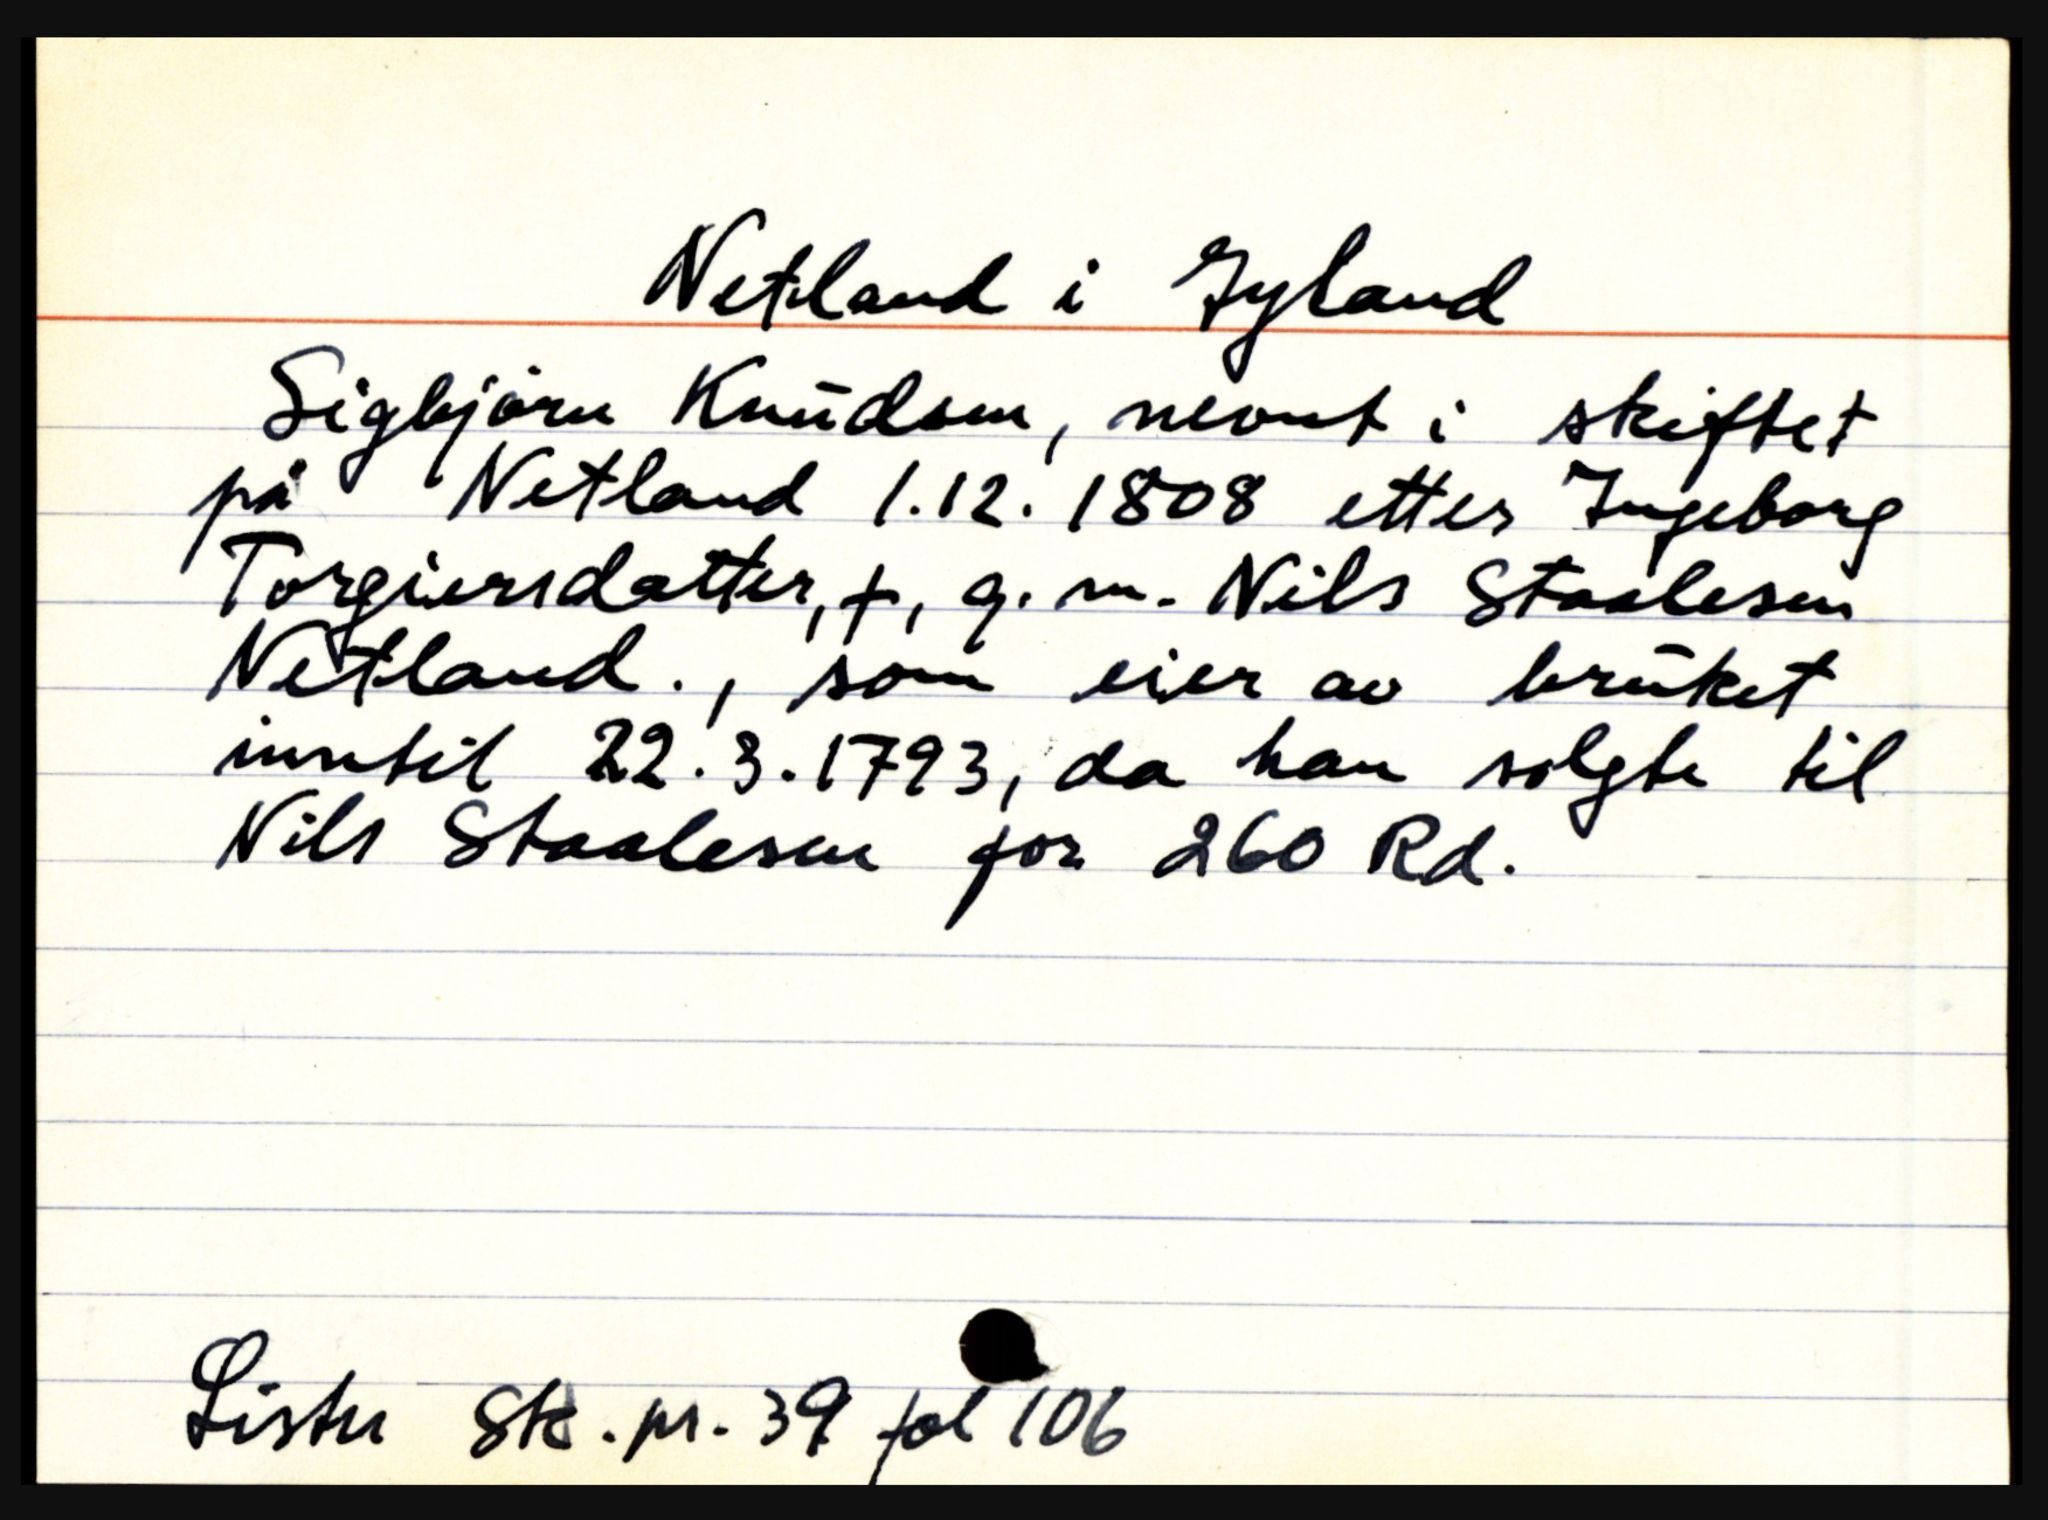 Netland i Gyland
Sigbjørn Knudsen, nevnt i skiftet
på Netland 1.12.1808 etter Ingeborg
Torgiersdatter, +, g. m. Nils Staalesen
Netland., som eier av bruket
inntil 22.3.1793, da han solgte til
Nils Staalesen for 260 Rd.
Lister Sk. pr. 39 fol 106